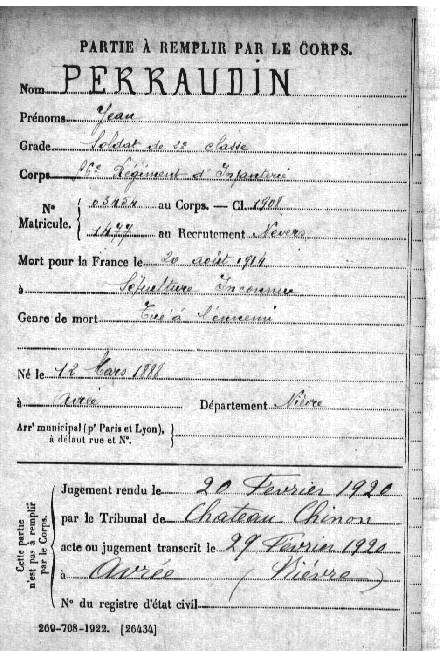 PARTIE À REMPLIR PAR LE CORPS.
Nom PERRAUDIN
Prénoms Jean
Grade Soldat de 2e classe
Corps Régiment d'Infanterie
Nº
Matricule.
au Corps. — Cl. 1908
1477 au Recrutement Nevers
Mort pour la France le 20 août 1914
à Sépulture Inconnue
Genre de mort Tué à l'ennemi
Né le 12 Mars 1888
à Avrée Département Nièvre
Arrt municipal (pr Paris et Lyon),
à défaut rue et Nº.
Cette partie
n'est pas à remplir
par le Corps.
Jugement rendu le 20 Fevrier 1920
par le Tribunal de Chateau-Chinon
acte ou jugement transcrit le 29 Février 1920
à Avrée (Nièvre)
Nº du registre d'état civil
269-708-1922. [26434]